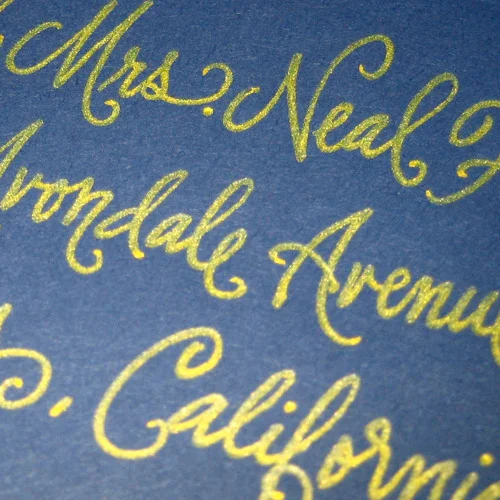 Mrs. Neal
Avondale Avenue
California